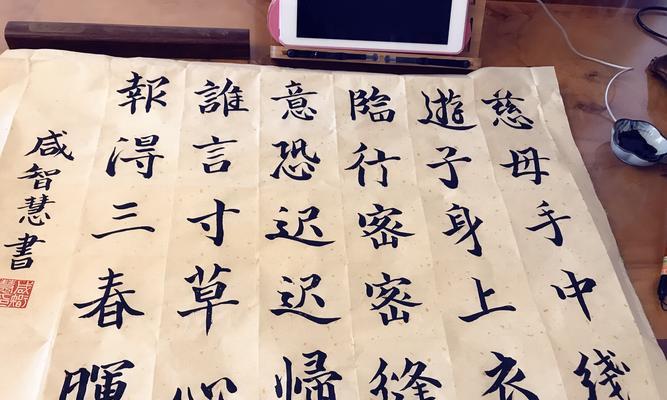 慈母手中綫
遊子身上衣
臨行密密縫
意恐迟迟歸
誰言寸草心
報得三春暉
咸智慧書